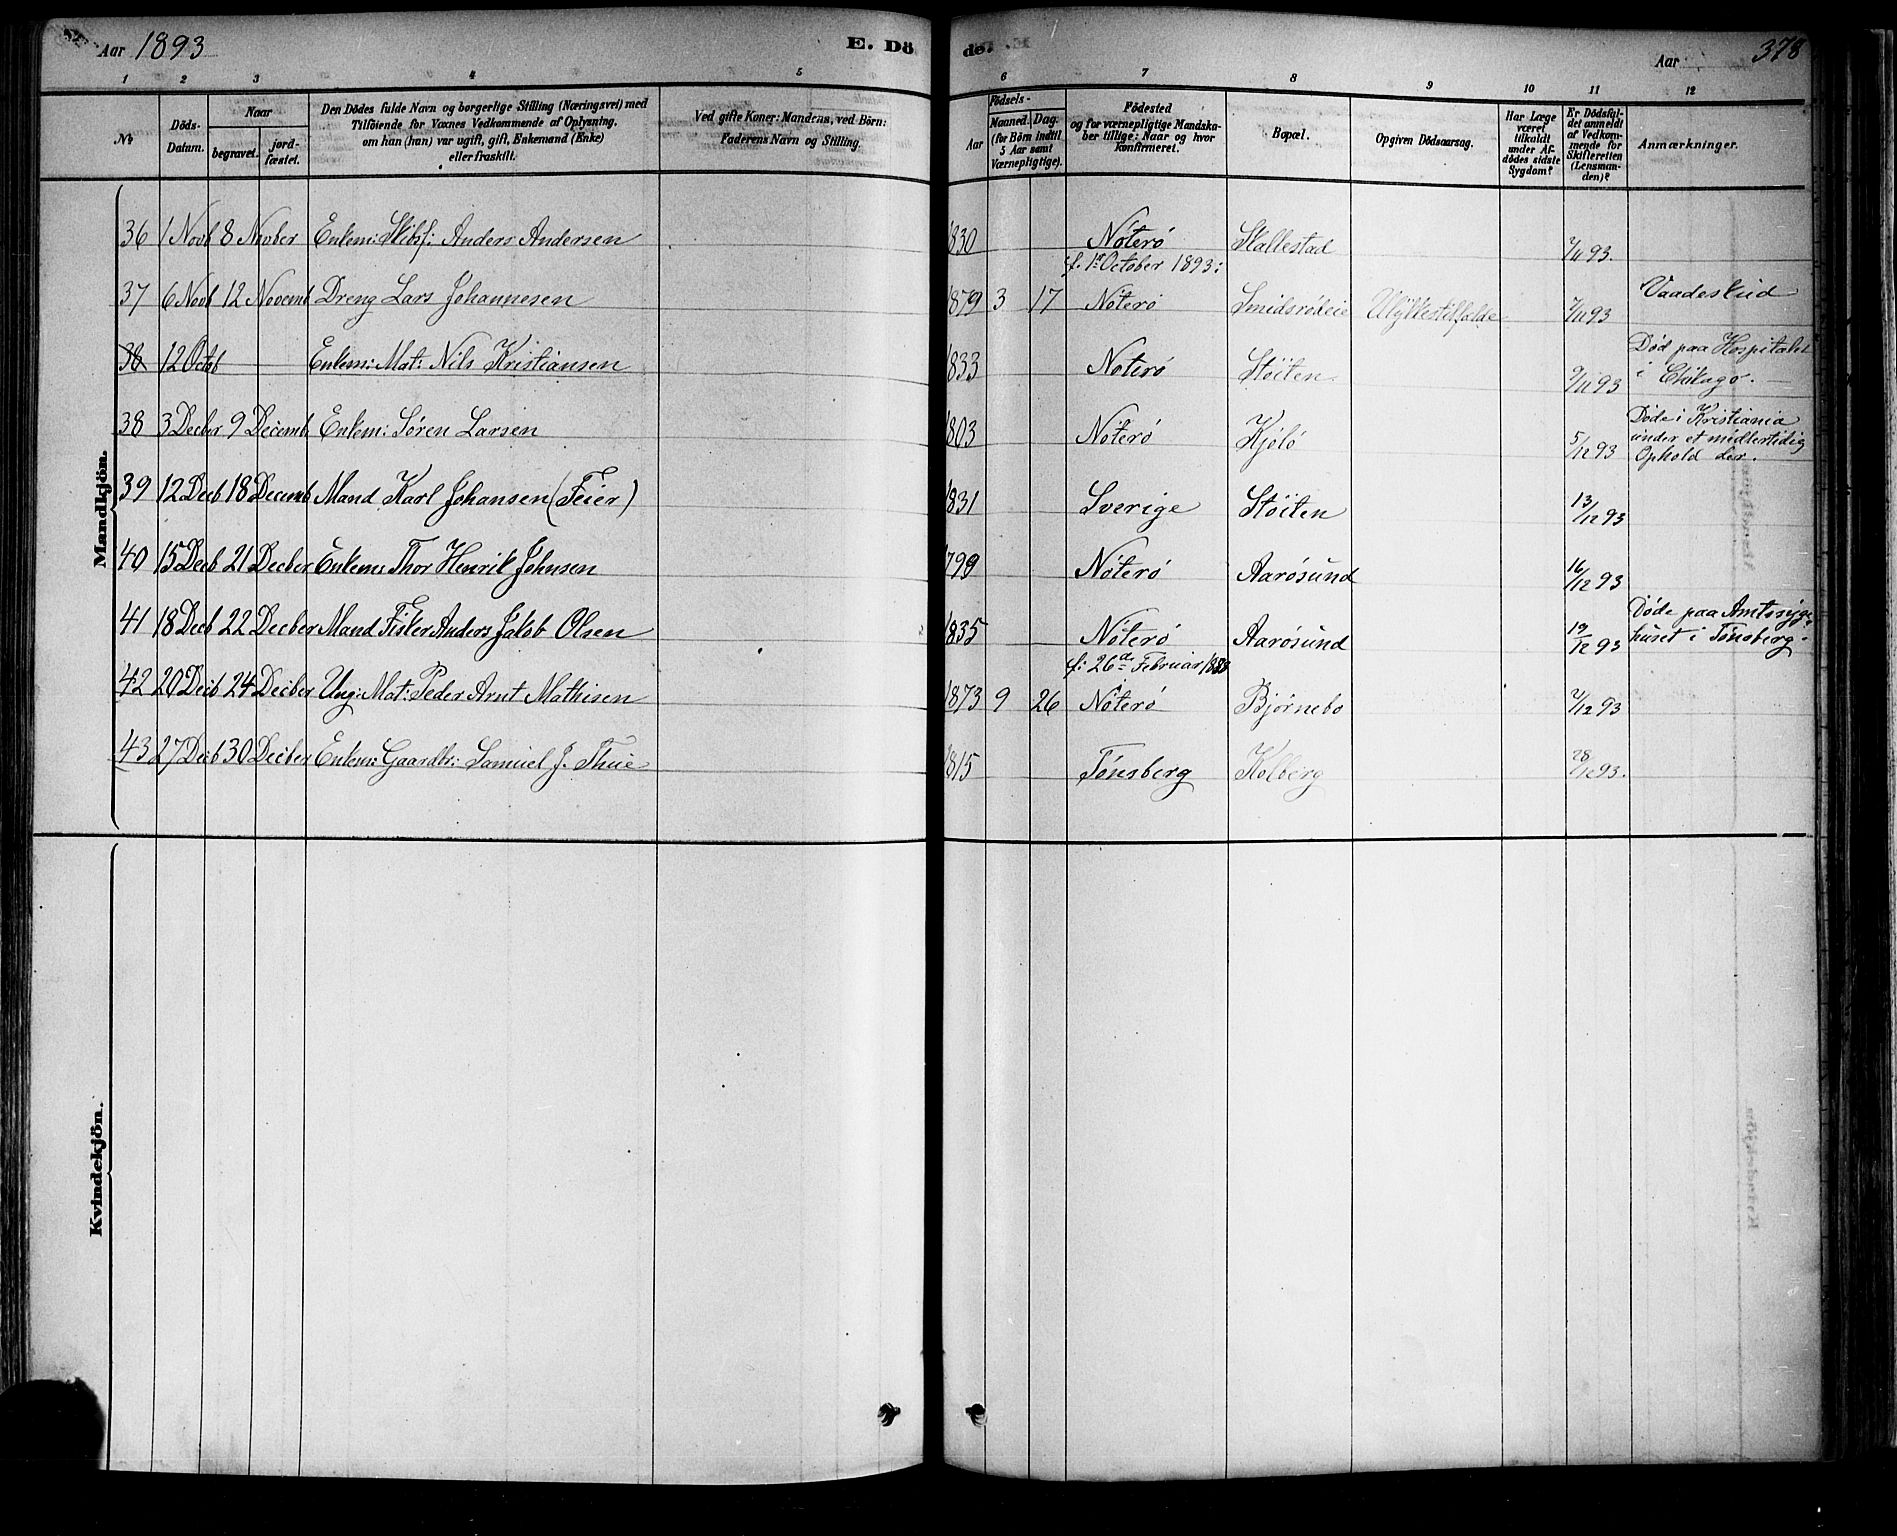 Aar 1893
E. Dö
de.
Aar
378
1 2 3 4 5 6 7 8 9 10 11 12
No
Döds-
Datum.
Naar
begravet.
jord-
fæstet.
Den Dödes fulde Navn og borgerlige Stilling (Næringsvei) med
Tilföiende for Voxnes Vedkommende af Oplysning,
om han (hun) var ugift, gift, Enkemand (Enke)
eller fraskilt.
Ved gifte Koner: Mandens, ved Börn:
Faderens Navn og Stilling.
Födsels-
Aar
Maaned.
Dag.
(for Börn indtil
5 Aar samt
Værnepligtige).
Födested
og for værnepligtige Mandska-
ber tillige: Naar og hvor
konfirmeret.
Bopæl.
Opgiven Dödsaarsag.
Har Læge
været
tilkaldt
under Af-
dödes sidste
Sygdom?
Er Dödsfal-
det anmeldt
af Vedkom-
mende for
Skifteretten
(Lensman-
den)?
Anmærkninger.
Mandkjön.
36 1 Novb 8 Novber Enkem: Skibsf: Anders Andersen 1830 Nøterø Skallestad 7/11 93.
f. 1ste October 1893:
37 6 Novb 12 Novemb Dreng Lars Johannesen 1879 3 17 Nøterø Smidsrødeie Ulykkestilfælde 7/11 93 Vaadeskud
38 12 Octob Enkem: Mat: Nils Kristiansen 1833 Nøterø Støiten 9/11 93 Død paa Hospitalet
i Chikago.
38 3 Decber 9 Decemb Enkem: Søren Larsen 1803 Nøterø Kjølø 5/12 93 Døde i Kristiania
under et midlertidig
Ophold der.
39 12 Decb 18 Decemb Mand Karl Johansen (Feier) 1831 Sverige Støiten 13/12 93
40 15 Decb 21 Decber Enkem: Thor Henrik Johnsen 1799 Nøterø Aarøsund 16/12 93
41 18 Decb 22 Decber Mand Fisker Anders Jakob Olsen 1835 Nøterø Aarøsund 19/12 93 Døde paa Amtssyge-
huset i Tønsberg.
f: 26de Februar
42 20 Decb 24 Decber Ung: Mat: Peder Arnt Mathisen 1873 9 26 Nøterø Bjørnebo /12 93
43 27 Decb 30 Decber Enkem: Gaardbr: Samuel J. Thue 1815 Tønsberg Kolberg 28/12 93.
Kvindekjön.